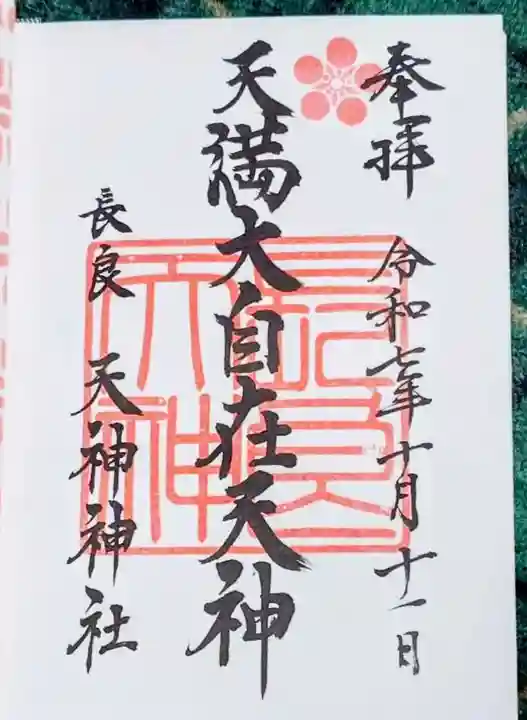 奉拝
令和七年十月十一日
天満大自在天神
長良 天神神社
長良天神